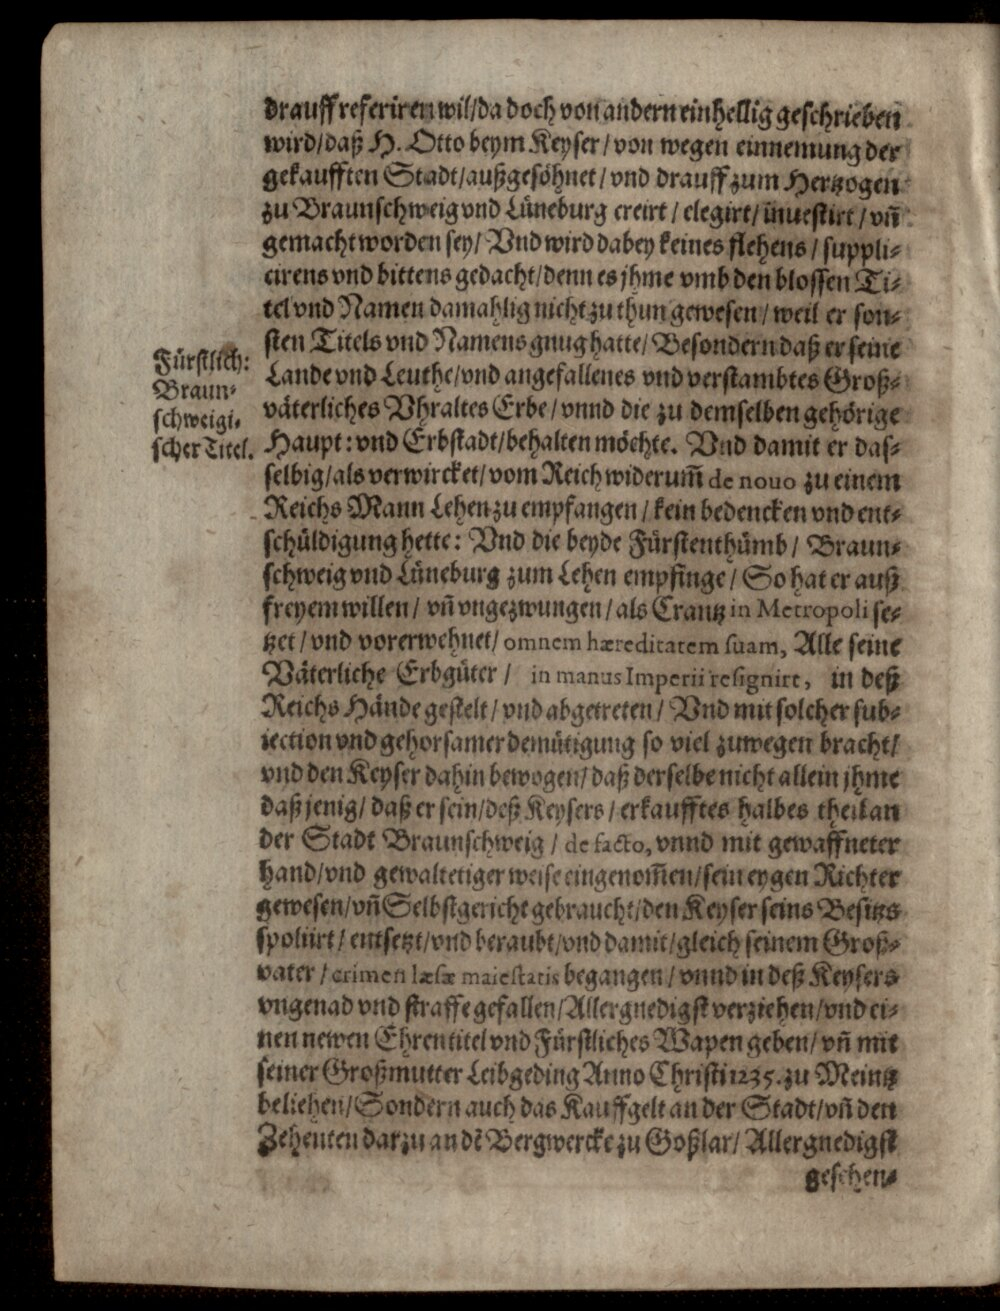 drauff referiren wil/da doch von andern einhellig geschrieben
wird/daß H. Otto beym Keyser/von wegen einnemung der
gekaufften Stadt/außgesöhnet/vnd drauff zum Hertzogen
zu Braunschweig vnd Lüneburg creirt/elegirt/inuestirt/vn̄
gemacht worden sey/Vnd wird dabey keines flehens/suppli-
cirens vnd bittens gedacht/denn es jhme vmb den blossen Ti-
tel vnd Namen damahlig nicht zu thun gewesen/weil er son-
sten Titels vnd Namens gnug hatte/Besondern daß er seine
Fürstlich:
Braun-
schweigi-
scher Titel.
Lande vnd Leuthe/vnd angefallenes vnd verstambtes Groß-
väterliches Vhraltes Erbe/vnnd die zu demselben gehörige
Haupt: vnd Erbstadt/behalten möchte. Vnd damit er das-
selbig/als verwircket/vom Reich widerum̄ de nouo zu einem
Reichs Mann Lehen zu empfangen/kein bedencken vnd ent-
schüldigung hette: Vnd die beyde Fürstenthümb/Braun-
schweig vnd Lüneburg zum Lehen empfinge/So hat er auß
freyem willen/vn̄ vngezwungen/als Crantz in Metropoli se-
tzet/vnd vorerwehnet/omnem hæreditatem suam, Alle seine
Väterliche Erbgüter/in manus Imperii resignirt, in deß
Reichs Hände gestelt/vnd abgetreten/Vnd mit solcher sub-
iection vnd gehorsamer demütigung so viel zuwegen bracht/
vnd den Keyser dahin bewogen/daß derselbe nicht allein jhme
daß jenig/daß er sein/deß Keysers/erkaufftes halbes theil an
der Stadt Braunschweig/de facto, vnnd mit gewaffneter
hand/vnd gewaltetiger weise eingenom̄en/sein eygen Richter
gewesen/vn̄ Selbstgericht gebraucht/den Keyser seins Besitzs
spoliirt/entsetzt/vnd beraubt/vnd damit/gleich seinem Groß-
vater/crimen læsæ maiestatis begangen/vnnd in deß Keysers
vngenad vnd straffe gefallen/Allergnedigst verziehen/vnd ei-
nen newen Ehrentitel vnd Fürstliches Wapen geben/vn̄ mit
seiner Großmutter Leibgeding Anno Christi 1235. zu Meintz
beliehen/Sondern auch das Kauffgelt an der Stadt/vn̄ den
Zehenten darzu an dē Bergwercke zu Goßlar/Allergnedigst
geschen-